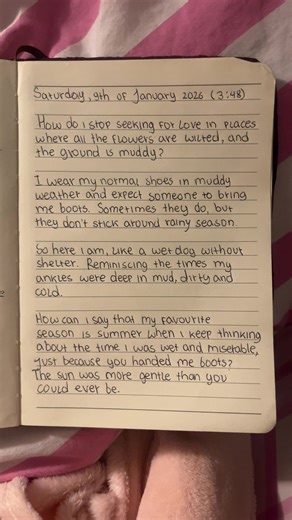 Saturday, 9th of January 2026 (3:48)
How do i stop seeking for love in places
where all the flowers are wilted, and
the ground is muddy?
I wear my normal shoes in muddy
weather and expect someone to bring
me boots. Sometimes they do, but
they don't stick around rainy season.
So here I am, like a wet dog without
shelter. Reminiscing the times my
ankles were deep in mud, dirty and
cold.
How can i say that my favourite
season is summer when I keep thinking
about the time I was wet and misetable,
just because you handed me boots?
The sun was more gentle than you
could ever be.